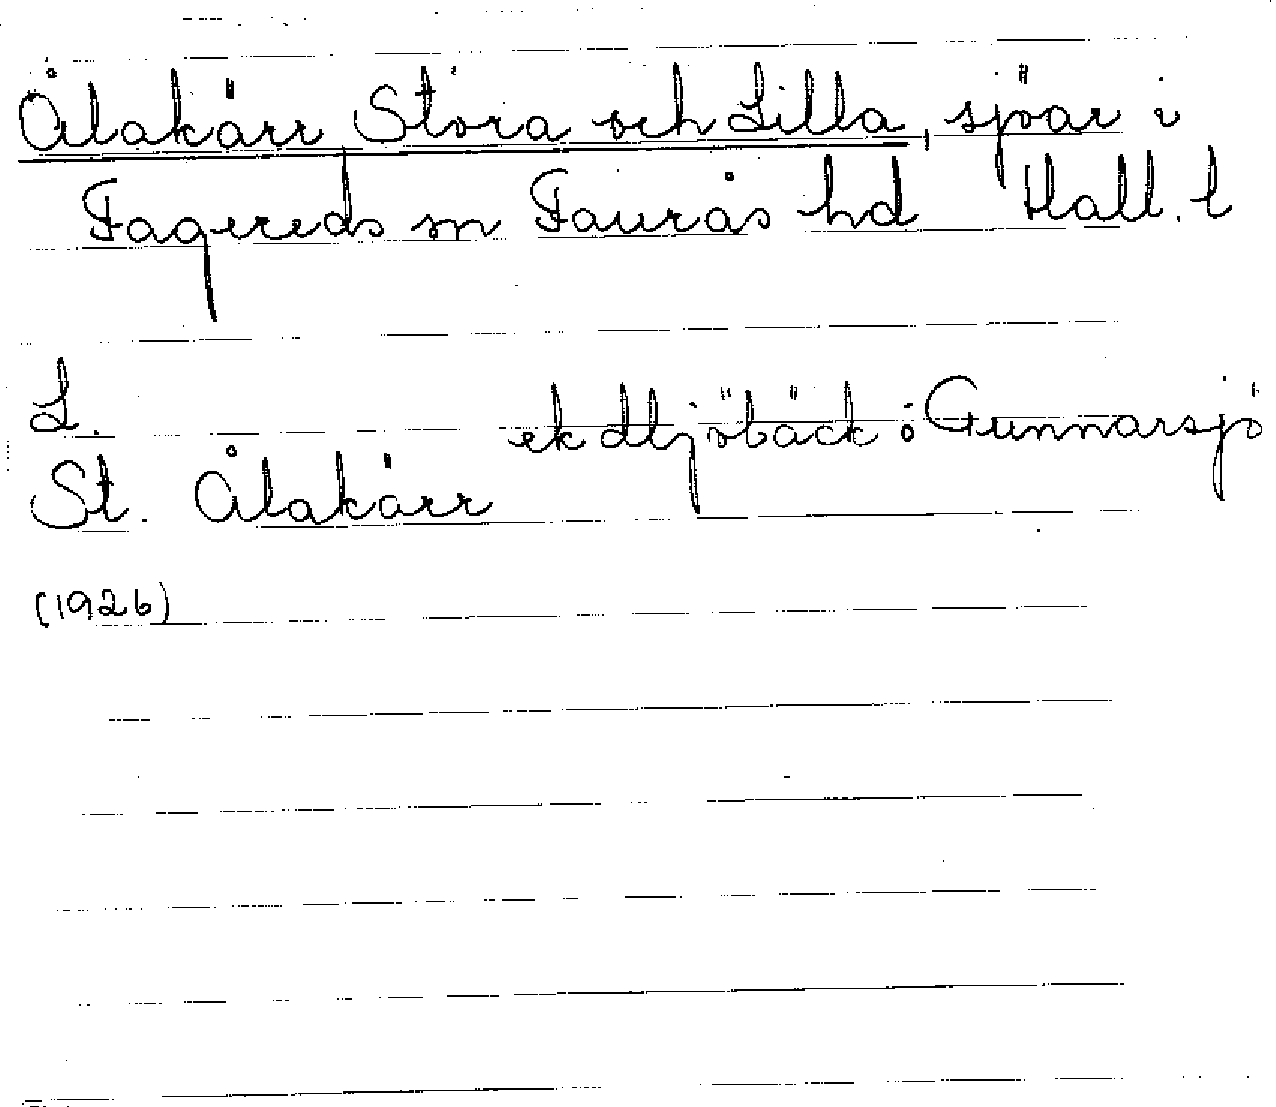 Ålakärr Stora och Lilla, sjöar i
Fagereds sn Faurås hd Hall. l
L.
ek Mjöbäck o Gunnarsjö
St. Ålakärr
(1926)